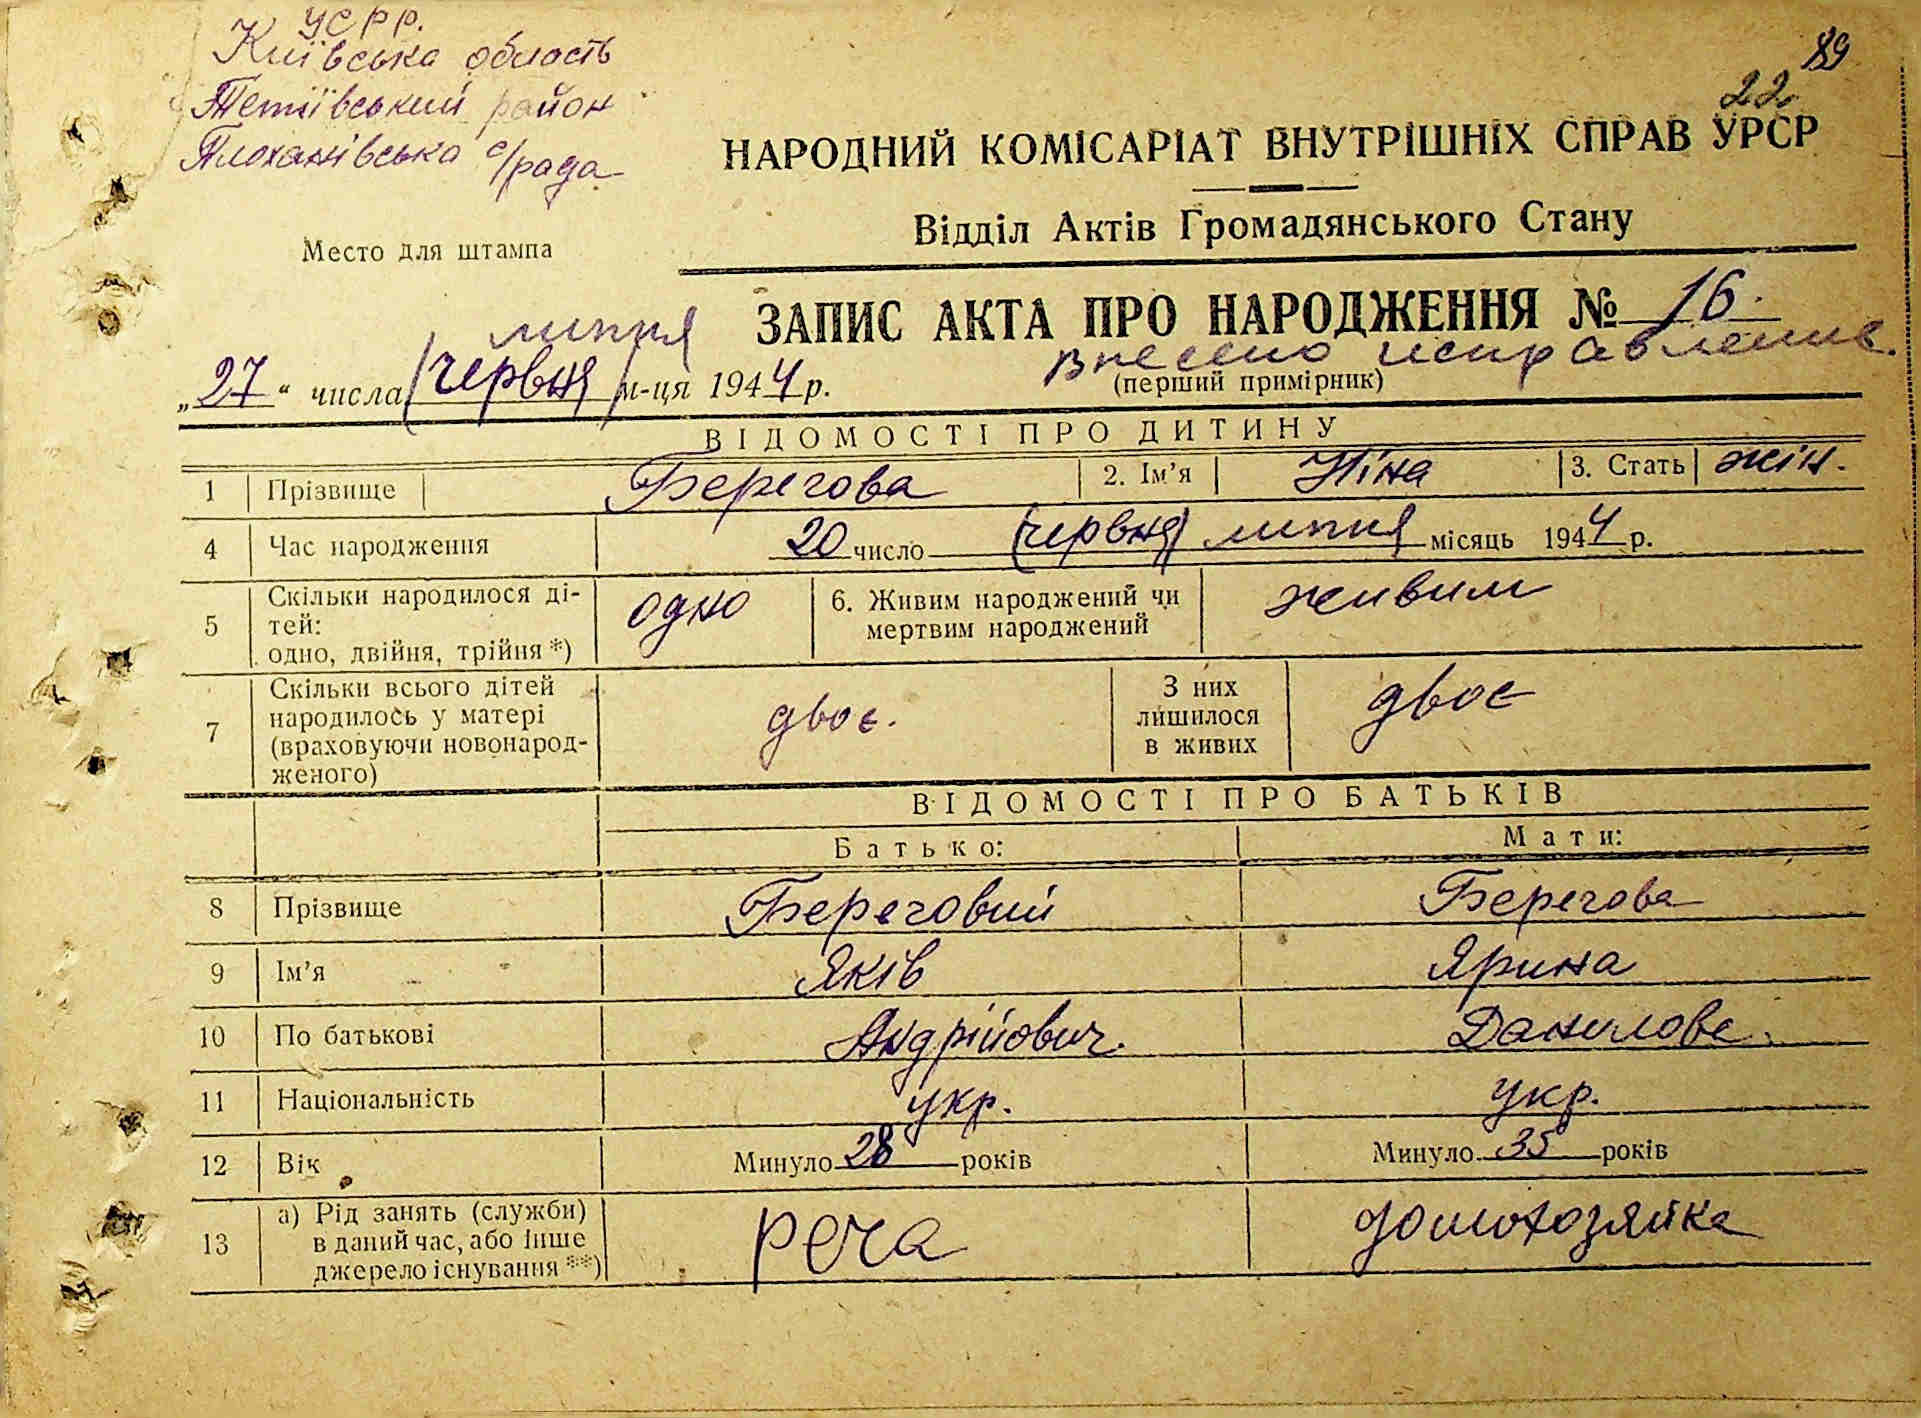 УСРР.
Київська область
Тетіївський район
Плоханівська с/рада
89
22
НАРОДНИЙ КОМІСАРІАТ ВНУТРІШНІХ СПРАВ УРСР
Відділ Актів Громадянського Стану
Место для штампа
ЗАПИС АКТА ПРО НАРОДЖЕННЯ № 16.
липня
Внесено исправление.
„27“ числа (червня) м-ця 1944 р.
(перший примірник)
ВІДОМОСТІ ПРО ДИТИНУ
1 Прізвище Берегова 2. Ім’я Ніна 3. Стать жін.
4 Час народження 20 число (червня) липня місяць 1944 р.
5 Скільки народилося ді-
тей:
одно, двійня, трійня *) одно 6. Живим народжений чи
мертвим народжений живим
7 Скільки всього дітей
народилось у матері
(враховуючи новонарод-
женого) двоє. З них
лишилося
в живих двоє
ВІДОМОСТІ ПРО БАТЬКІВ
Батько: Мати:
8 Прізвище Береговий Берегова
9 Ім’я Яків Ярина
10 По батькові Андрійович. Данилова.
11 Національність укр. укр.
12 Вік Минуло 28 років Минуло 35 років
13 а) Рід занять (служби)
в даний час, або інше
джерело існування **) РСЧА домохозяйка